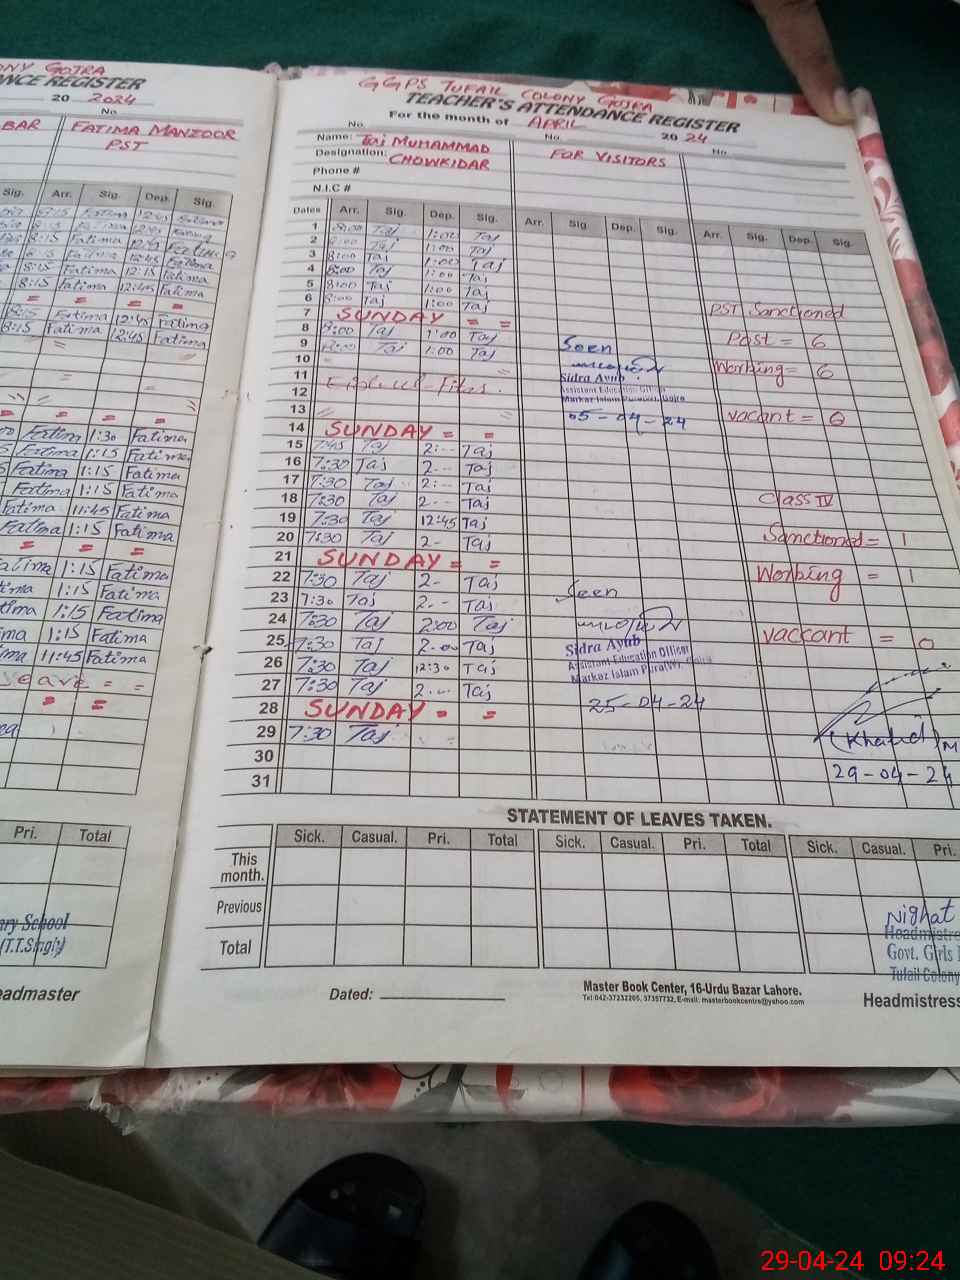 ONY GOJRA
NCE REGISTER
20 2024
No
BAR FATIMA MANZOOR
PST
Sig. Arr. Sig. Dep. Sig.
8:15 Fatima 12:45
8:15 Fatima 12:45 Fatima
8:15 Fatima 12:45 Fatima
8:15 Fatima 12:15 Fatima
8:15 Fatima 12:45 Fatima
= = = =
8:15 Fatima 12:45 Fatima
8:15 Fatima 12:45 Fatima
= = = =
Fatima 1:30 Fatima
Fatima 1:15 Fatima
Fatima 1:15 Fatima
Fatima 1:15 Fatima
Fatima 11:45 Fatima
Fatima 1:15 Fatima
= = =
Fatima 1:15 Fatima
1:15 Fatima
1:15 Fatima
1:15 Fatima
11:45 Fatima
eave = =
= =
Pri. Total
ary School
(T.T.Singh)
eadmaster
GGPS TUFAIL COLONY GOJRA
TEACHER'S ATTENDANCE REGISTER
For the month of APRIL 20 24
No. No. No
Name: Taj MUHAMMAD FOR VISITORS
Designation: CHOWKIDAR
Phone #
N.I.C #
Dates Arr. Sig. Dep. Sig. Arr. Sig Dep. Sig. Arr. Sig. Dep. Sig.
1 8:00 Taj 1:00 Taj
2 8:00 Taj 1:00 Taj
3 8:00 Taj 1:00 Taj
4 8:00 Taj 1:00 Taj
5 8:00 Taj 1:00 Taj
6 8:00 Taj 1:00 Taj
7 SUNDAY = =
8 8:00 Taj 1:00 Taj
9 8:00 Taj 1:00 Taj
10
11
12
13
14 SUNDAY = =
15 7:45 Taj 2:-- Taj
16 7:30 Taj 2:-- Taj
17 7:30 Taj 2:-- Taj
18 7:30 Taj 2-- Taj
19 7:30 Taj 12:45 Taj
20 7:30 Taj 2- Taj
21 SUNDAY = =
22 7:30 Taj 2- Taj
23 7:30 Taj 2-- Taj
24 7:30 Taj 2:00 Taj
25 7:30 Taj 2:00 Taj
26 7:30 Taj 12:30 Taj
27 7:30 Taj 2-- Taj
28 SUNDAY = =
29 7:30 Taj
30
31
Seen
Sidra Ayub
Assistant Education Officer
Markaz Islam Pura(W), Gojra
05-04-24
Seen
Sidra Ayub
Assistant Education Officer
Markaz Islam Pura(W), Gojra
25-04-24
PST Sanctioned
Post = 6
Working = 6
vacant = 0
Class IV
Sanctioned = 1
Working = 1
vaccant = 0
(Khalid) M
29-04-24
STATEMENT OF LEAVES TAKEN.
Sick. Casual. Pri. Total Sick. Casual. Pri. Total Sick. Casual. Pri.
This
month.
Previous
Total
Nighat
Headmistre
Govt. Girls
Tufail Colony
Dated:
Master Book Center, 16-Urdu Bazar Lahore.
Tel:042-37232205, 37357732, E-mail: masterbookcentre@yahoo.com
Headmistress
29-04-24 09:24